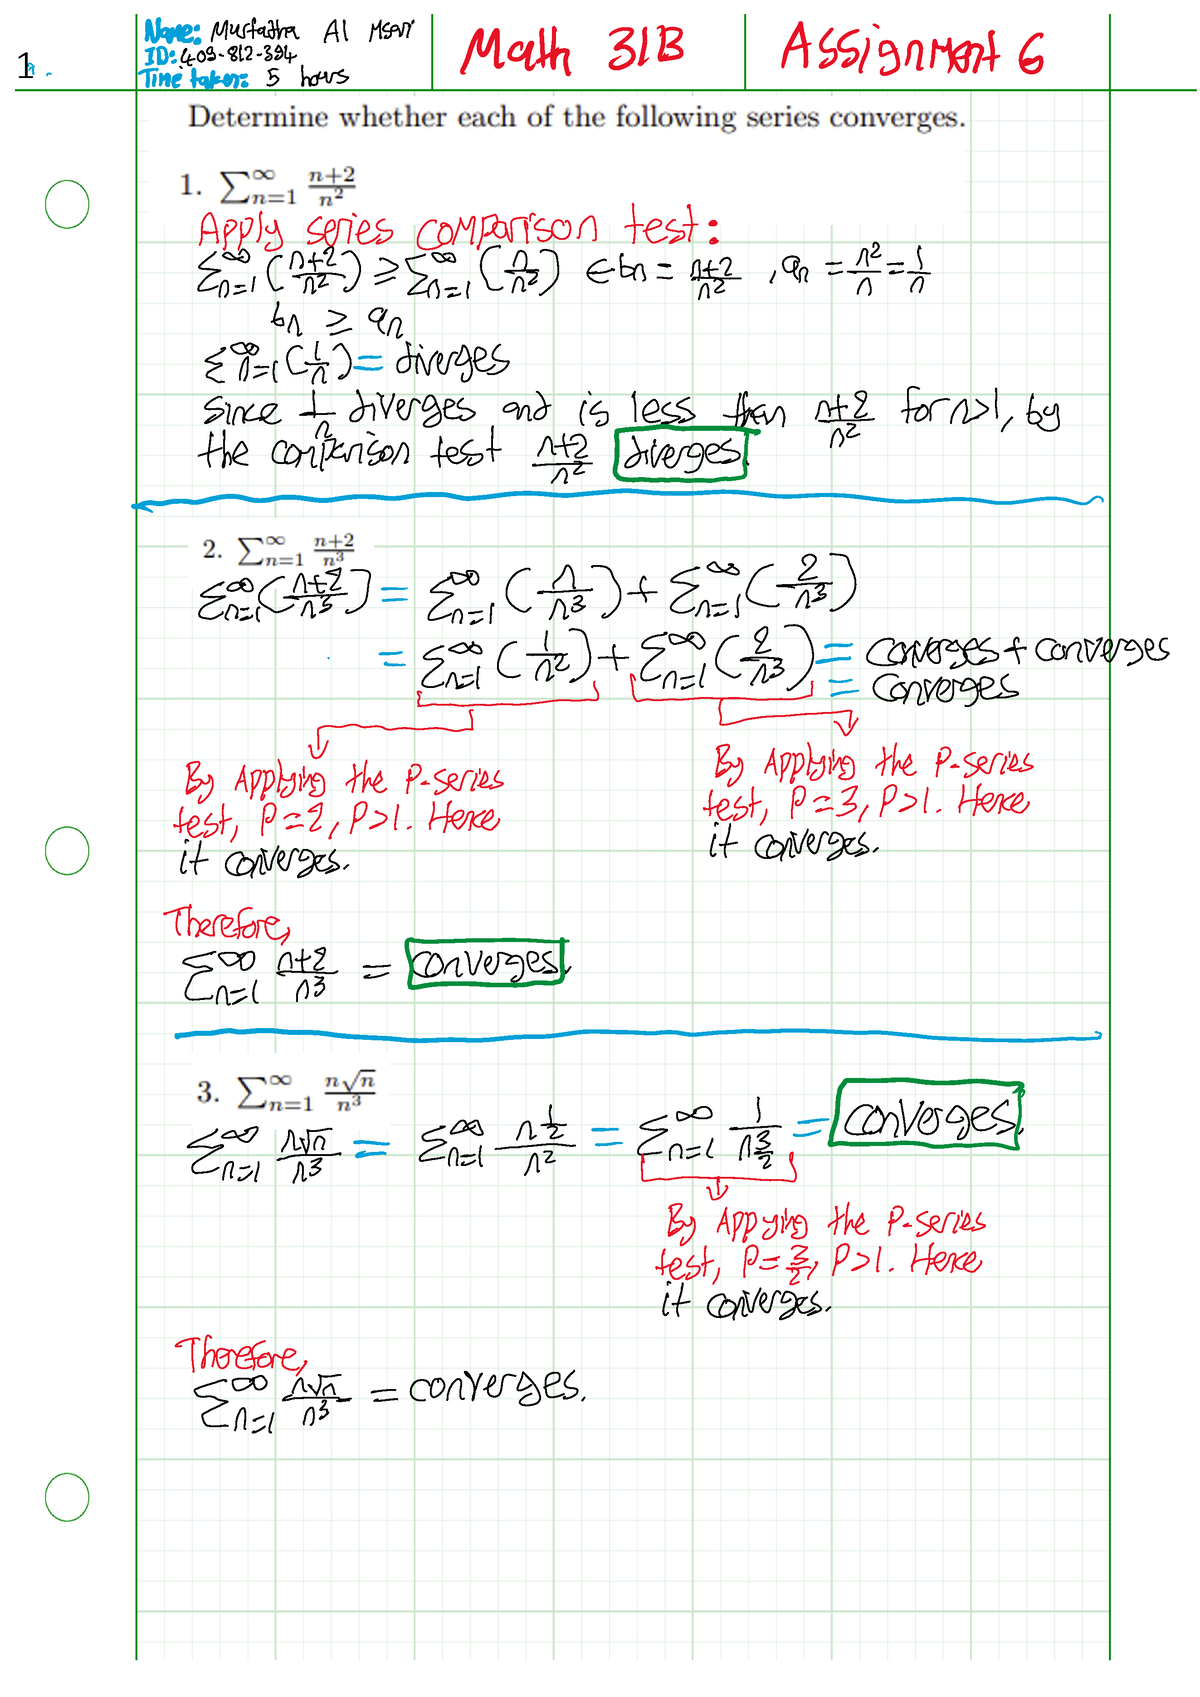 1.
Name: Murtadha Al Msari
ID: 409-812-394
Time taken: 5 hours
Math 31B
Assignment 6
Determine whether each of the following series converges.
1. ∑_{n=1}^∞ (n+2)/n²
Apply series comparison test:
∑_{n=1}^∞ ((n+2)/n²) ≥ ∑_{n=1}^∞ (n/n²) ← bn = (n+2)/n², an = n²/n = 1/n
bn ≥ an
∑_{n=1}^∞ (1/n) = diverges
Since 1/n diverges and is less than (n+2)/n² for n>1, by
the comparison test (n+2)/n² diverges.
2. ∑_{n=1}^∞ (n+2)/n³
∑_{n=1}^∞ ((n+2)/n³) = ∑_{n=1}^∞ (n/n³) + ∑_{n=1}^∞ (2/n³)
= ∑_{n=1}^∞ (1/n²) + ∑_{n=1}^∞ (2/n³) = converges + converges
= converges
By Applying the P-series
test, P=2, P>1. Hence
it converges.
By Applying the P-series
test, P=3, P>1. Hence
it converges.
Therefore,
∑_{n=1}^∞ (n+2)/n³ = converges.
3. ∑_{n=1}^∞ n√n/n³
∑_{n=1}^∞ n√n/n³ = ∑_{n=1}^∞ n^{1/2}/n² = ∑_{n=1}^∞ 1/n^{3/2} = converges.
By Appying the P-series
test, P=3/2, P>1. Hence
it converges.
Therefore,
∑_{n=1}^∞ n√n/n³ = converges.